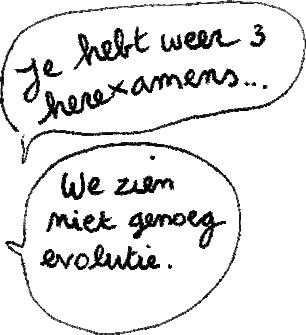 Je hebt weer 3
herexamens...
We zien
niet genoeg
evolutie.